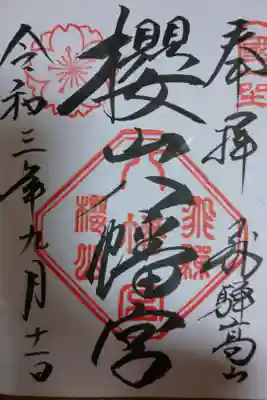 奉拝
飛騨高山
櫻山八幡宮
令和三年九月十一日